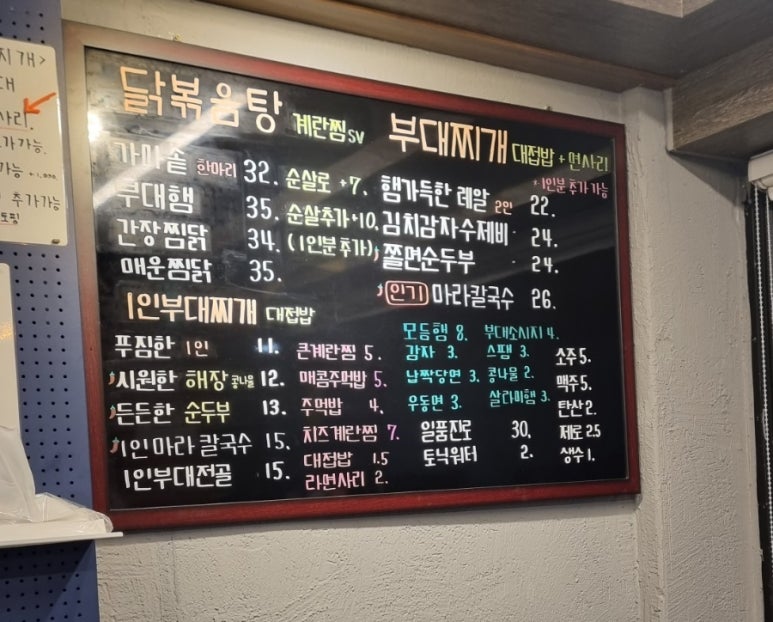 찌개>
사리.
가능.
가능 +1,000.
추가가능
토핑
닭볶음탕 계란찜 SV
가마솥 한마리 32. 순살로 +7.
부대햄 35. 순살추가 +10.
간장찜닭 34. (1인분추가)
매운찜닭 35.
부대찌개 대접밥 + 면사리
*1인분 추가 가능
햄가득한 레알 2인 22.
김치감자수제비 24.
쫄면순두부 24.
인기 마라칼국수 26.
1인부대찌개 대접밥
푸짐한 1인 11.
시원한 해장 콩나물 12.
든든한 순두부 13.
1인 마라칼국수 15.
1인부대전골 15.
큰계란찜 5.
매콤주먹밥 5.
주먹밥 4.
치즈계란찜 7.
대접밥 1.5
라면사리 2.
모듬햄 8. 부대소시지 4.
감자 3. 스팸 3.
납작당면 3. 콩나물 2.
우동면 3. 살라미햄 3.
일품진로 30.
토닉워터 2.
소주 5.
맥주 5.
탄산 2.
제로 2.5
생수 1.